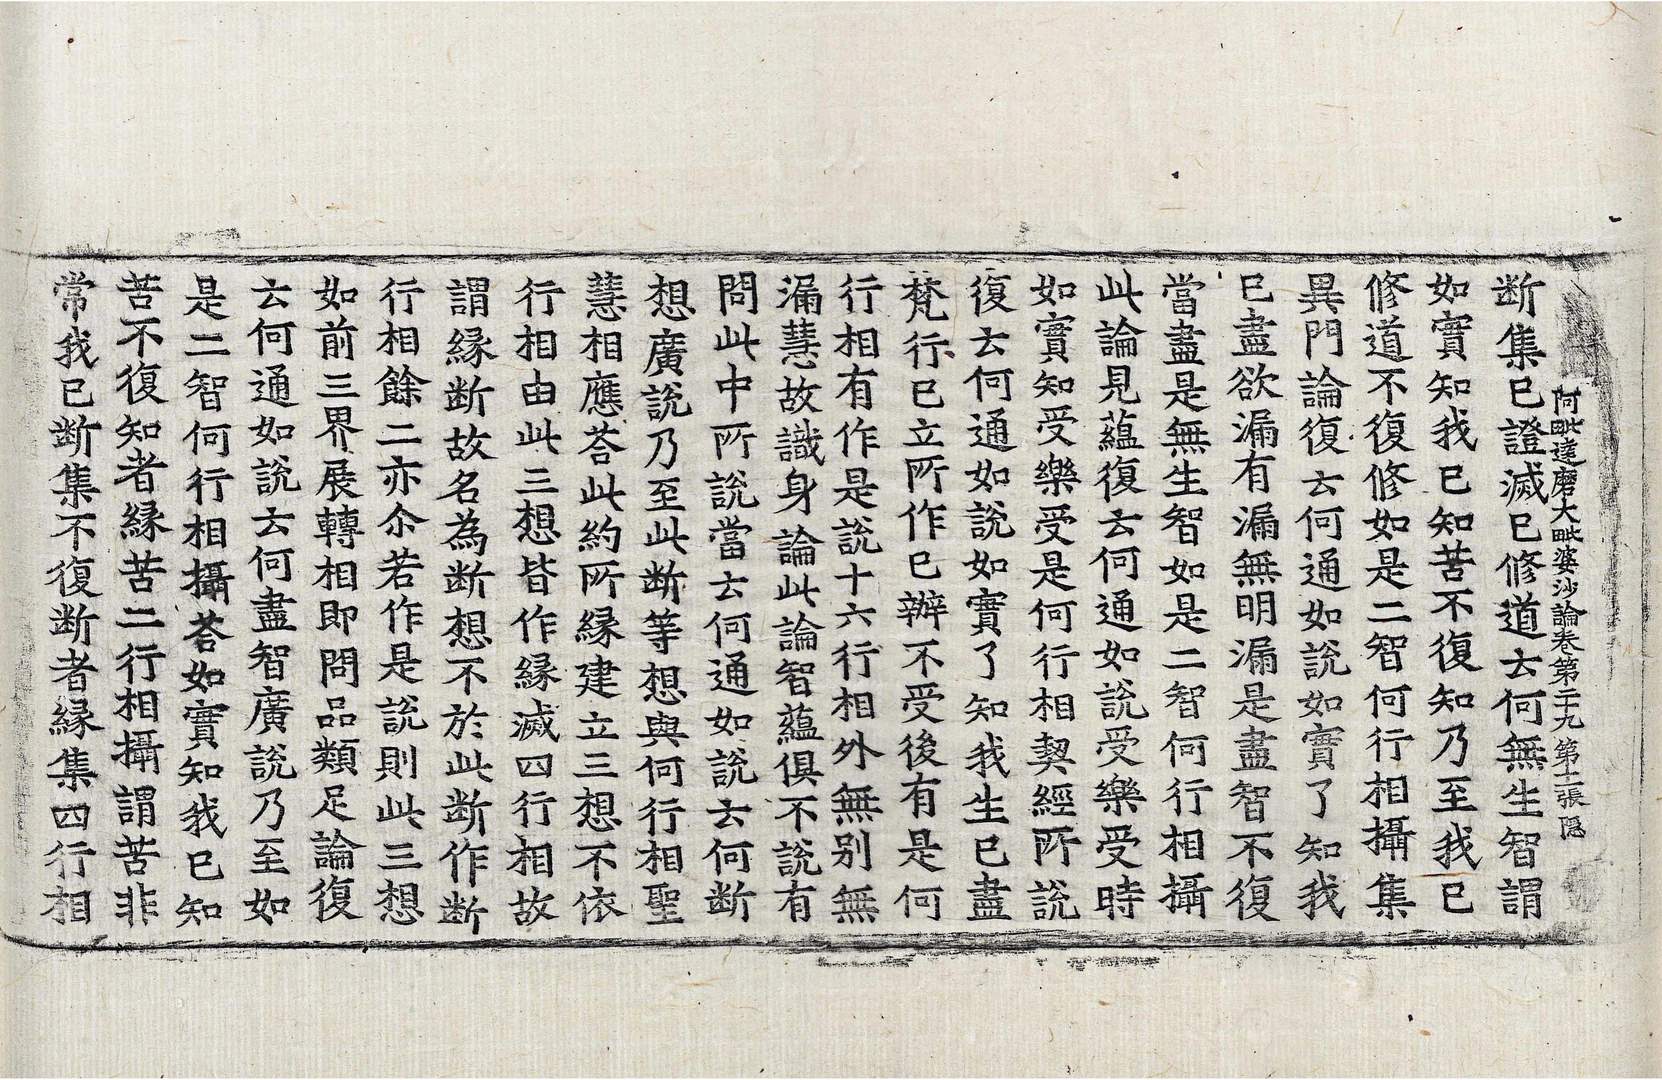 阿毗達磨大毗婆沙論卷第二十九 第十二張 隱
断集已證滅已修道云何無生智謂
如實知我已知苦不復知乃至我已
修道不復修如是二智何行相攝集
異門論復云何通如說如實了知我
已盡欲漏有漏無明漏是盡智不復
當盡是無生智如是二智何行相攝
此論見蘊復云何通如說受樂受時
如實知受樂受是何行相契經所說
復云何通如說如實了知我生已盡
梵行已立所作已辦不受後有是何
行相有作是說十六行相外無別無
漏慧故識身論此論智蘊俱不說有
問此中所說當云何通如說云何断
想廣說乃至此断等想與何行相聖
慧相應荅此約所緣建立三想不依
行相由此三想皆作緣滅四行相故
謂緣断故名為断想不於此断作断
行相餘二亦尒若作是說則此三想
如前三界展轉相即問品類足論復
云何通如說云何盡智廣說乃至如
是二智何行相攝荅如實知我已知
苦不復知者緣苦二行相攝謂苦非
常我已断集不復断者緣集四行相